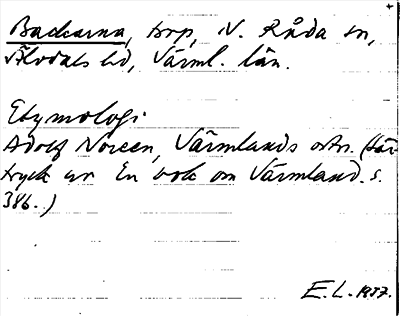 Backarna, torp, N. Råda sn,
Älvdals hd, Värml. län.
Etymologi
Adolf Noreen, Värmlands ortn. (Sär
tryck ur En bok om Värmland. s.
386.)
E. L. 1937.